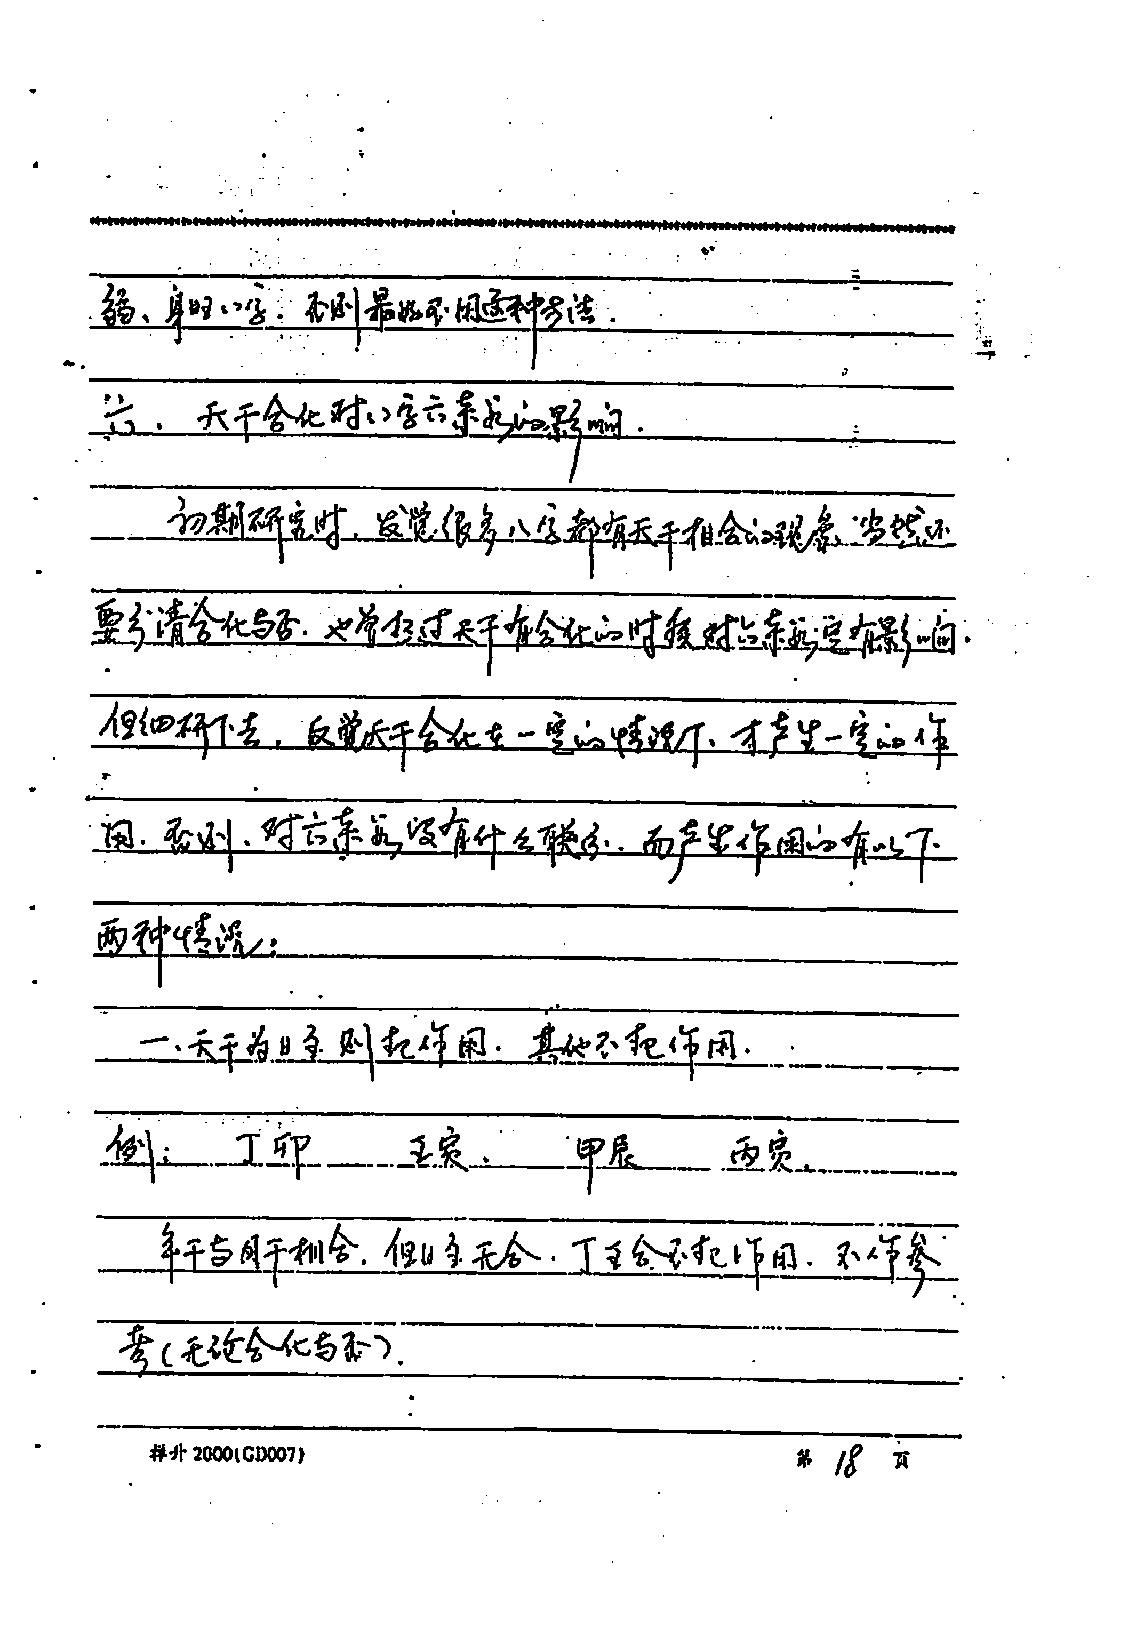 弱、身旺八字. 否则最好不用这种方法.
六. 天干合化对八字六亲数的影响.
初期研究时, 发觉很多八字都有天干相合的现象, 当然还
要分清合化与否. 也曾想过天干有合化的时候对六亲数定有影响.
但细研下去, 反觉天干合化在一定的情况下, 才产生一定的作
用. 否则, 对六亲数没有什么联系. 而产生作用的有以下
两种情况:
一、天干为日主则起作用. 其他不起作用.
例: 丁卯 壬寅. 甲辰 丙寅.
年干与月干相合. 但日主无合. 丁壬合不起作用. 不作参
考(无论合化与否).
2000(GD007) 第 18 页